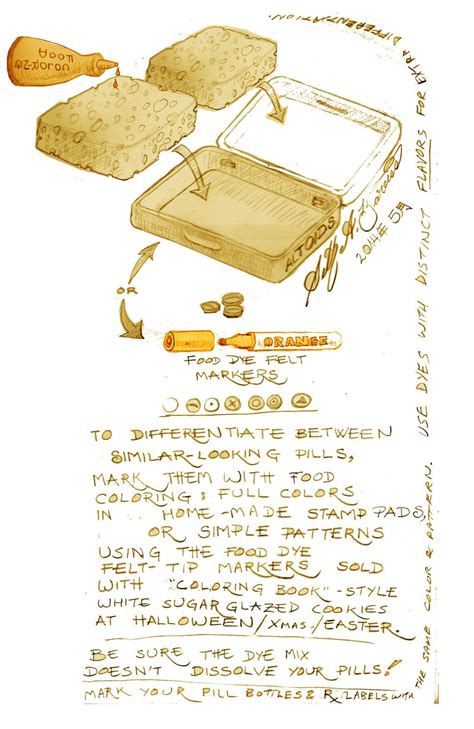 COLOR-ZO
FOOD
ALTOIDS
2014年5月
OR
ORANGE
FOOD DYE FELT
MARKERS
TO DIFFERENTIATE BETWEEN
SIMILAR-LOOKING PILLS,
MARK THEM WITH FOOD
COLORING: FULL COLORS
IN HOME-MADE STAMP PADS,
OR SIMPLE PATTERNS
USING THE FOOD DYE
FELT-TIP MARKERS SOLD
WITH "COLORING BOOK"-STYLE
WHITE SUGAR GLAZED COOKIES
AT HALLOWEEN/XMAS/EASTER.
BE SURE THE DYE MIX
DOESN'T DISSOLVE YOUR PILLS!
MARK YOUR PILL BOTTLES & Rx LABELS WITH
THE SAME COLOR & PATTERN. USE DYES WITH DISTINCT FLAVORS FOR EXTRA DIFFERENTIATION.